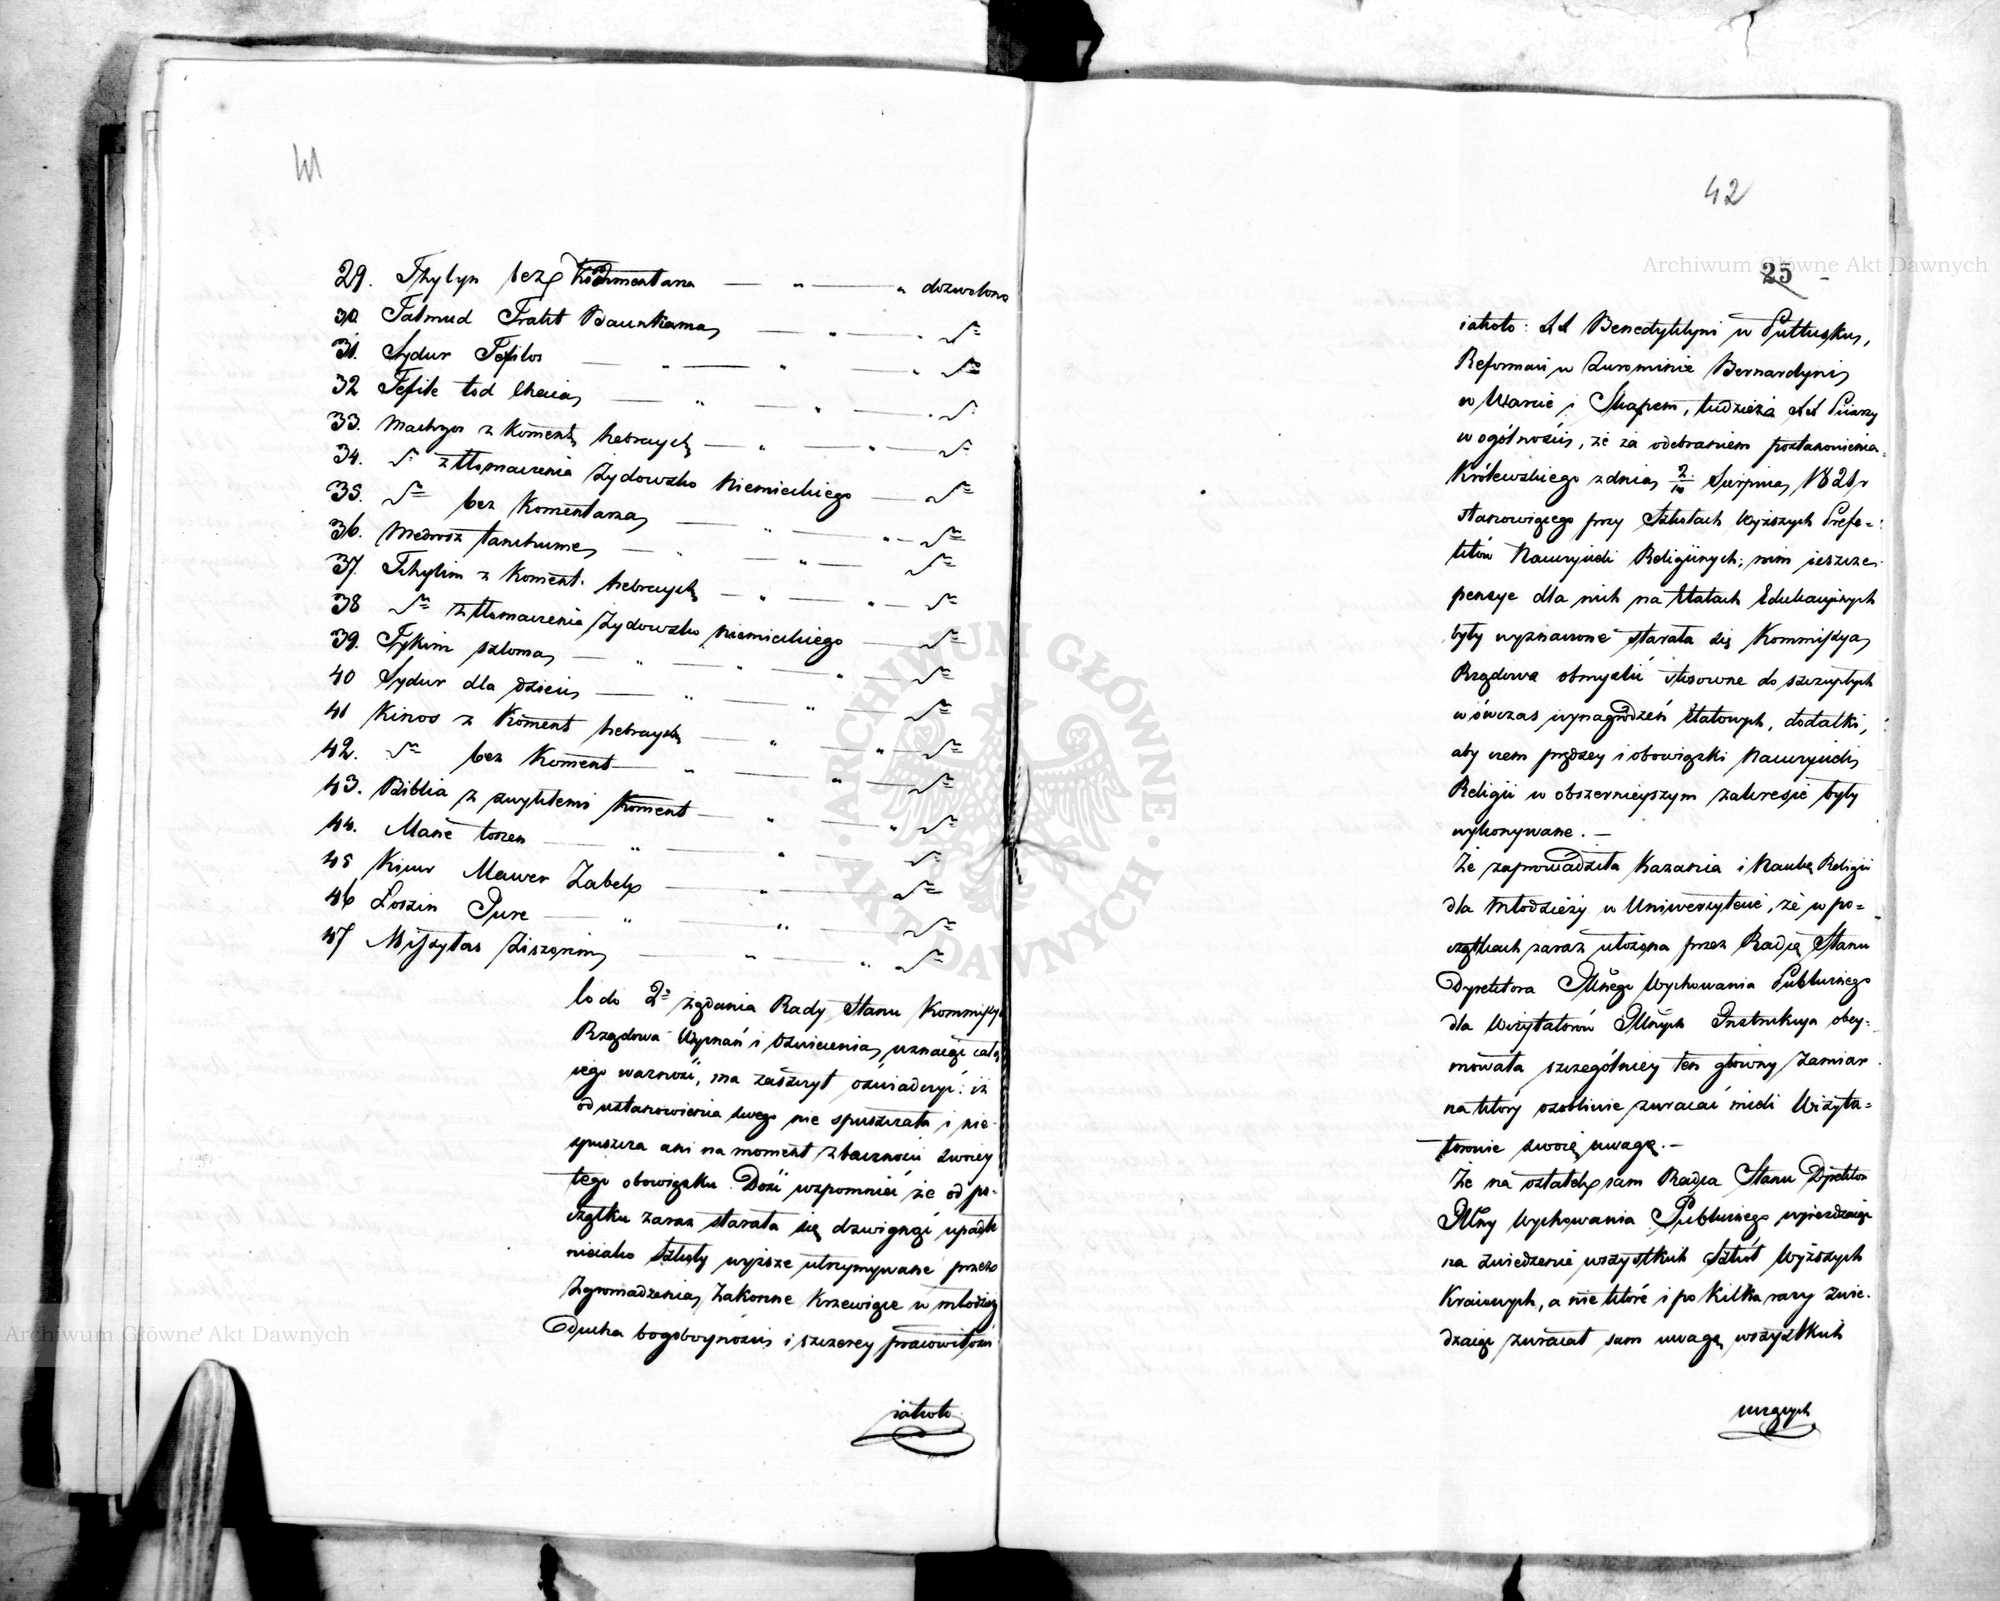 41
29. Thylyn bez Kommentarza — " — " dozwolono
30. Talmud Trakt Baunkama — " — " dº
31. Sydur Tefilos — " — " — " dº
32 Tefile kod Chaia — " — " — " dº
33. Machzor z Koment hebrayck — " — " dº
34. dº z tłomaczenia Żydowsko Niemieckiego — dº
35. dº bez Komentarza — " — " dº
36. Medrosz tanchume — " — " — dº
37. Tchylim z Koment. hebrayck — " — " dº
38 dº z tłomaczenia Żydowsko Niemieckiego — dº
39. Tykim szloma — " — " — " dº
40 Sydur dla Dzieci — " — " — dº
41 Kinos z Koment hebrayck — " — " dº
42. dº bez Koment — " — " dº
43. Biblia z zwykłemi Koment — " — " dº
44. Mane loszen — " — " — dº
45 Kicur Mawer Jabek — " — dº
46 Loszin Pure — " — " — dº
47 — " — " dº
Co do 2º żądania Rady Stanu Kommissya
Rządowa Wyznań i Oświecenia, uznaiąc całą
iego ważność, ma zaszczyt oświadczyć: iż
od ustanowienia swego nie spuszczała i nie
spuszcza ani na moment z baczności swoiey
tego obowiązku. Dość wspomnieć że od po-
czątku zaraz starała się dzwignąć upadłe
nieiako szkoły wyższe utrzymywane przez
Zgromadzenia Zakonne Krzewiące w młodzieży
Ducha bogoboyności i szczerey pracowitości
iakoto
42
25 -
iakoto: XX Benedyktyni w Pułtusku,
Reformaci w Żurominie Bernardyni
w Warcie i Skapem, tudzież XX Piiarzy
w ogólności, że za odebraniem postanowienia
Królewskiego z dnia 2/10 Sierpnia 1821 r
stanowiącego przy Szkołach Wyższych Prefe-
któw Nauczycieli Religiinych; nim ieszcze
pensye dla nich na Etatach Edukacyinych
były wyznaczone starała się Kommissya
Rządowa obmyślić stosowne do szczupłych
wówczas wynagrodzeń Etatowych, dodatki,
aby czem prędzey i obowiązki Nauczycieli
Religii w obszernieyszym zakresie były
wykonywane. —
Że zaprowadziła Kazania i Naukę Religii
dla Młodzieży w Uniwersytecie, że w po-
czątkach zaraz ułożona przez Radcę Stanu
Dyrektora Glnego Wychowania Publicznego
dla Wizytatorów Glnych Instrukcya obey-
mowała szczególniey ten główny zamiar
na który osobliwie zwracać mieli Wizyta-
torowie swoią uwagę. —
Że na ostatek sam Radca Stanu Dyrektor
Glny Wychowania Publicznego wyieżdzaiąc
na zwiedzenie wszystkich Szkół Wyższych
Kraiowych, a niektóre i po kilka razy zwie-
dzaiąc zwracał sam uwagę wszystkich
uczących
Archiwum Główne Akt Dawnych
Archiwum Główne Akt Dawnych
ARCHIWUM GŁÓWNE · AKT DAWNYCH ·